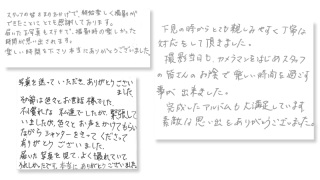 スタッフの皆さまのおかげで、終始楽しく撮影が
できたこと とても感謝しております。
届いたお写真もステキで、撮影時の楽しかった
時間が思い出されます。
楽しい時間を下さり本当にありがとうございました。
写真を送っていただき、ありがとうござい
ました。
撮影は色々とお世話様でした。
不慣れな私達でしたが、緊張して
いましたが、色々とお声をかけてもらい
ながらシャッターをきってくださって
ありがとうございました。
届いた写真を見て、よく撮れていて
うれしかったです。本当にありがとうございました。
下見の時からとても親しみやすく丁寧な
対応をして頂きました。
撮影当日も、カメラマンをはじめスタッフ
の皆さんのお陰で楽しい時間を過ごす
事が出来ました。
完成したアルバムも大満足しています
素敵な思い出をありがとうございました。